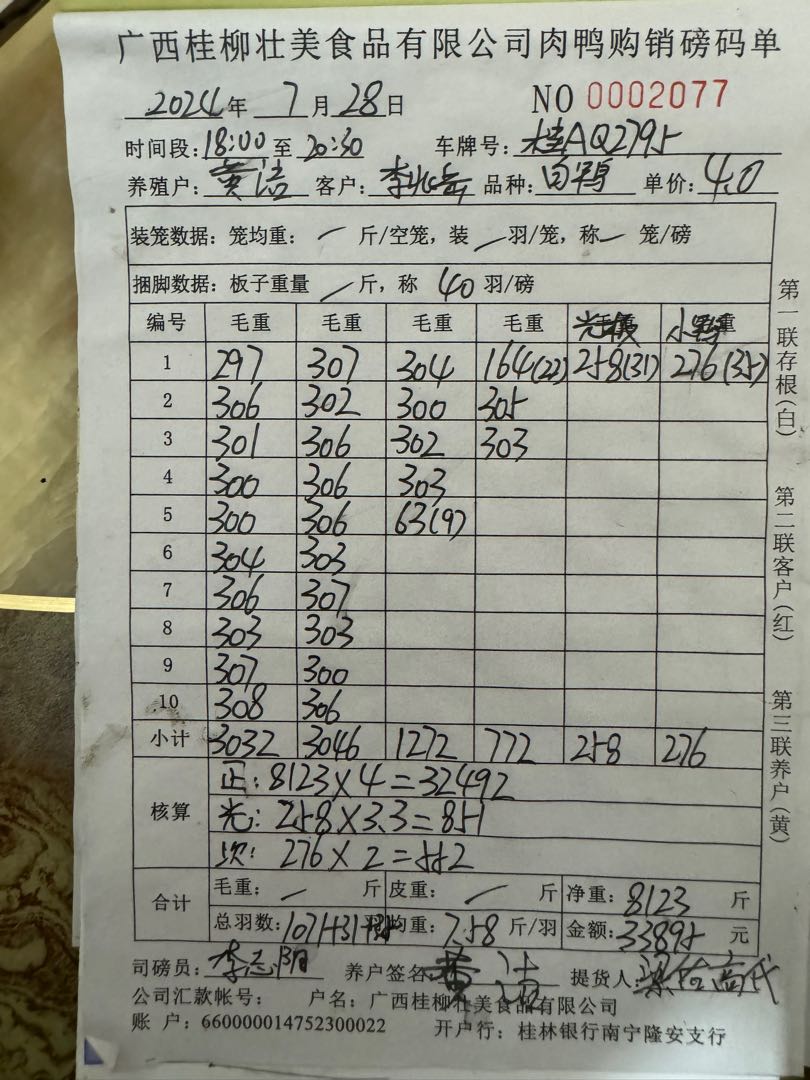 广西桂柳壮美食品有限公司肉鸭购销磅码单
2024年 7月28日 NO 0002077
时间段:18:00至20:30 车牌号:桂AQ2795
养殖户:黄洁 客户:李兆岳 品种:白鸭 单价:4.0
装笼数据:笼均重: / 斤/空笼,装 / 羽/笼,称 / 笼/磅
捆脚数据:板子重量 / 斤,称 40 羽/磅
编号 毛重 毛重 毛重 毛重 光板 小鸭
1 297 307 304 164(22) 258(31) 276(35)
2 306 302 300 305
3 301 306 302 303
4 300 306 303
5 300 306 63(9)
6 304 303
7 306 307
8 303 303
9 307 300
10 308 306
小计 3032 3046 1272 772 258 276
核算
正:8123×4=32492
光:258×3.3=851
次:276×2=552
合计
毛重: / 斤 皮重: / 斤 净重:8123 斤
总羽数:1071+31+35 羽 均重:7.58 斤/羽 金额:33895 元
司磅员:李志阳 养户签名:黄洁 提货人:
公司汇款帐号: 户名:广西桂柳壮美食品有限公司
账 户:660000014752300022 开户行:桂林银行南宁隆安支行
第一联存根(白)
第二联客户(红)
第三联养户(黄)